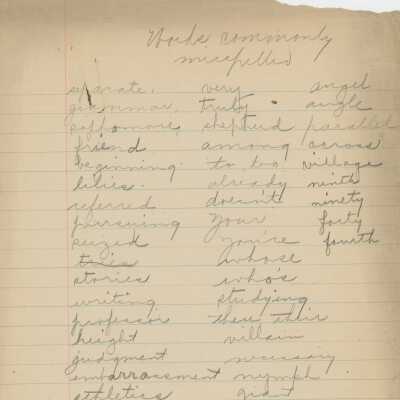 Words commonly
misspelled
separate. very angel
grammar. truly angle
sophomore shepherd parallel
friend among across
beginning. to, too village
lilies. already ninth
referred doesn't ninety
pursuing your forty
seized you're fourth
ties whose
stories who's
writing studying
professor there their
height villain
judgment necessary
embarrassment nymph
athletics giant